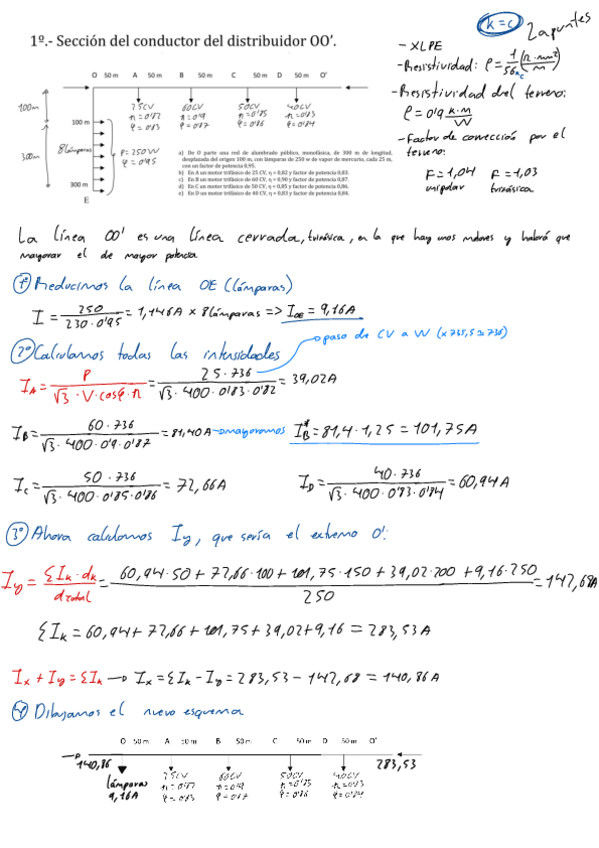 k=c 2 apuntes
1º.- Sección del conductor del distribuidor OO'.
- XLPE
- Resistividad: ρ = 1/56 (Ω·mm²/m)
- Resistividad del terreno:
ρ = 0'9 k·m/W
- Factor de corrección por el
terreno:
F=1,04 F=1,03
unipolar trifásica
O 50 m A 50 m B 50 m C 50 m D 50 m O'
25CV 60CV 50CV 40CV
η=0'82 η=0'9 η=0'85 η=0'83
φ=0'83 φ=0'87 φ=0'86 φ=0'84
100m
100 m
300m
8 lámparas
P=250W
φ=0'95
300 m
E
a) De O parte una red de alumbrado público, monofásica, de 300 m de longitud,
desplazada del origen 100 m, con lámparas de 250 w de vapor de mercurio, cada 25 m,
con un factor de potencia 0,95.
b) En A un motor trifásico de 25 CV, η = 0,82 y factor de potencia 0,83.
c) En B un motor trifásico de 60 CV, η = 0,90 y factor de potencia 0,87.
d) En C un motor trifásico de 50 CV, η = 0,85 y factor de potencia 0,86.
d) En D un motor trifásico de 40 CV, η = 0,83 y factor de potencia 0,84.
La línea OO' es una línea cerrada, trifásica, en la que hay unos motores y habrá que
mayorar el de mayor potencia
1º Reducimos la línea OE (lámparas)
I = 250/(230·0'95) = 1,146A x 8 lámparas => I_OE = 9,16A
paso de CV a W (x 735,5 ≃ 736)
2º Calculamos todas las intensidades
I_A = P/(√3·V·cosφ·η) = 25·736/(√3·400·0'83·0'82) = 39,02A
I_B = 60·736/(√3·400·0'9·0'87) = 81,40A → mayoramos I_B* = 81,4·1,25 = 101,75A
I_C = 50·736/(√3·400·0'85·0'86) = 72,66A I_D = 40·736/(√3·400·0'83·0'84) = 60,94A
3º Ahora calculamos Iy, que sería el extremo O':
Iy = ΣIk·dk/dtotal = (60,94·50 + 72,66·100 + 101,75·150 + 39,02·200 + 9,16·250)/250 = 142,68A
ΣIk = 60,94 + 72,66 + 101,75 + 39,02 + 9,16 = 283,53A
Ix + Iy = ΣIk → Ix = ΣIk - Iy = 283,53 - 142,68 = 140,86A
4º Dibujamos el nuevo esquema
O 50 m A 50 m B 50 m C 50 m D 50 m O'
140,86 283,53
lámparas 25CV 60CV 50CV 40CV
9,16A η=0'82 η=0'9 η=0'85 η=0'83
φ=0'83 φ=0'87 φ=0'86 φ=0'84